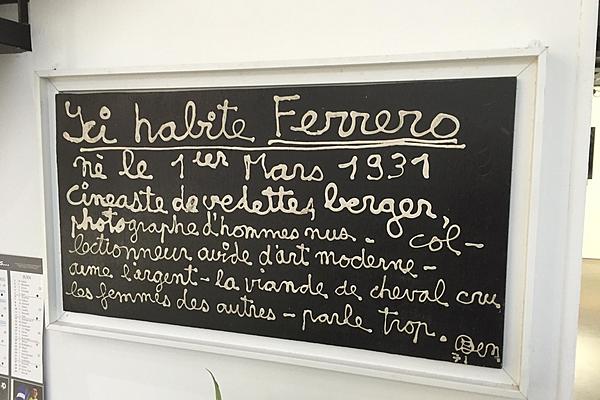 Ici habite Ferrero
né le 1er Mars 1931
cinéaste de vedettes, berger,
photographe d'hommes nus - col-
lectionneur avide d'art moderne -
aime l'argent - la viande de cheval cru,
les femmes des autres - parle trop. Ben
71